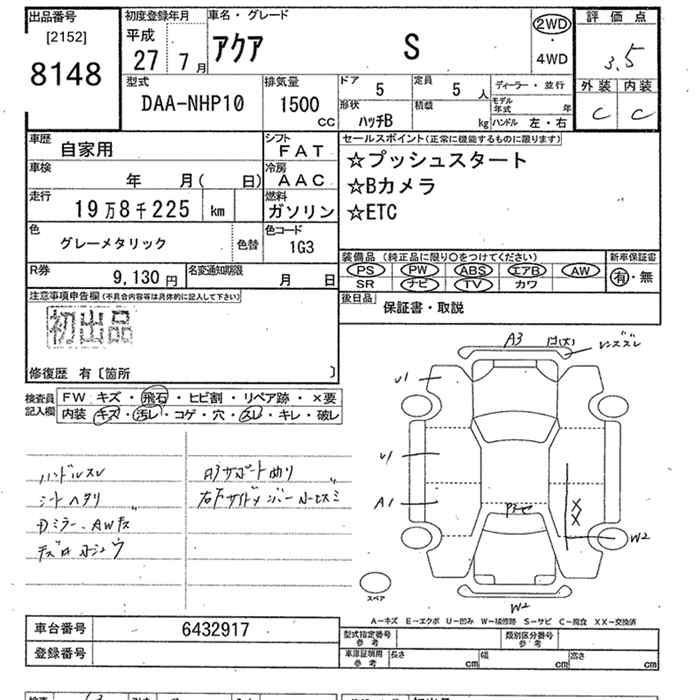 出品番号 初度登録年月 車名・グレード 2WD 評価点
[2152] 平成 ・
8148 27年 7月 アクア S 4WD 3.5
型式 排気量 ドア 5 定員 5 人 ディーラー・並行 外装 内装
DAA-NHP10 1500 cc 形状 ハッチB 積載 kg モデル年式 年 C C
ハンドル 左・右
車歴 自家用 シフト FAT セールスポイント(正常に機能するものに限ります)
車検 年 月( 日) 冷房 AAC ☆プッシュスタート
走行 19万8千225 km 燃料 ガソリン ☆Bカメラ
☆ETC
色 グレーメタリック 色替 色コード 1G3
装備品(純正品に限り○をつけてください) 新車保証書
R券 9,130円 名変通知期限 月 日 PS PW ABS エアB AW 有・無
SR ナビ TV カワ
注意事項申告欄(不具合内容等は具体的に記入して下さい) 後日品 保証書・取説
初出品
修復歴 有〔箇所 〕
検査員 FW キズ・飛石・ヒビ割・リペア跡・×要
記入欄 内装 キズ・汚レ・コゲ・穴・スレ・キレ・破レ
A3
U1
U1
A1
X
X
W2
W2
ハンドルスレ
シートヘタリ
スペア
A-キズ E-エクボ U-凹み W-補修跡 S-サビ C-腐食 XX-交換済
車台番号 6432917 型式指定番号 参考 類別区分番号 参考
登録番号 車庫証明用 参考 長さ cm 幅 cm 高さ cm